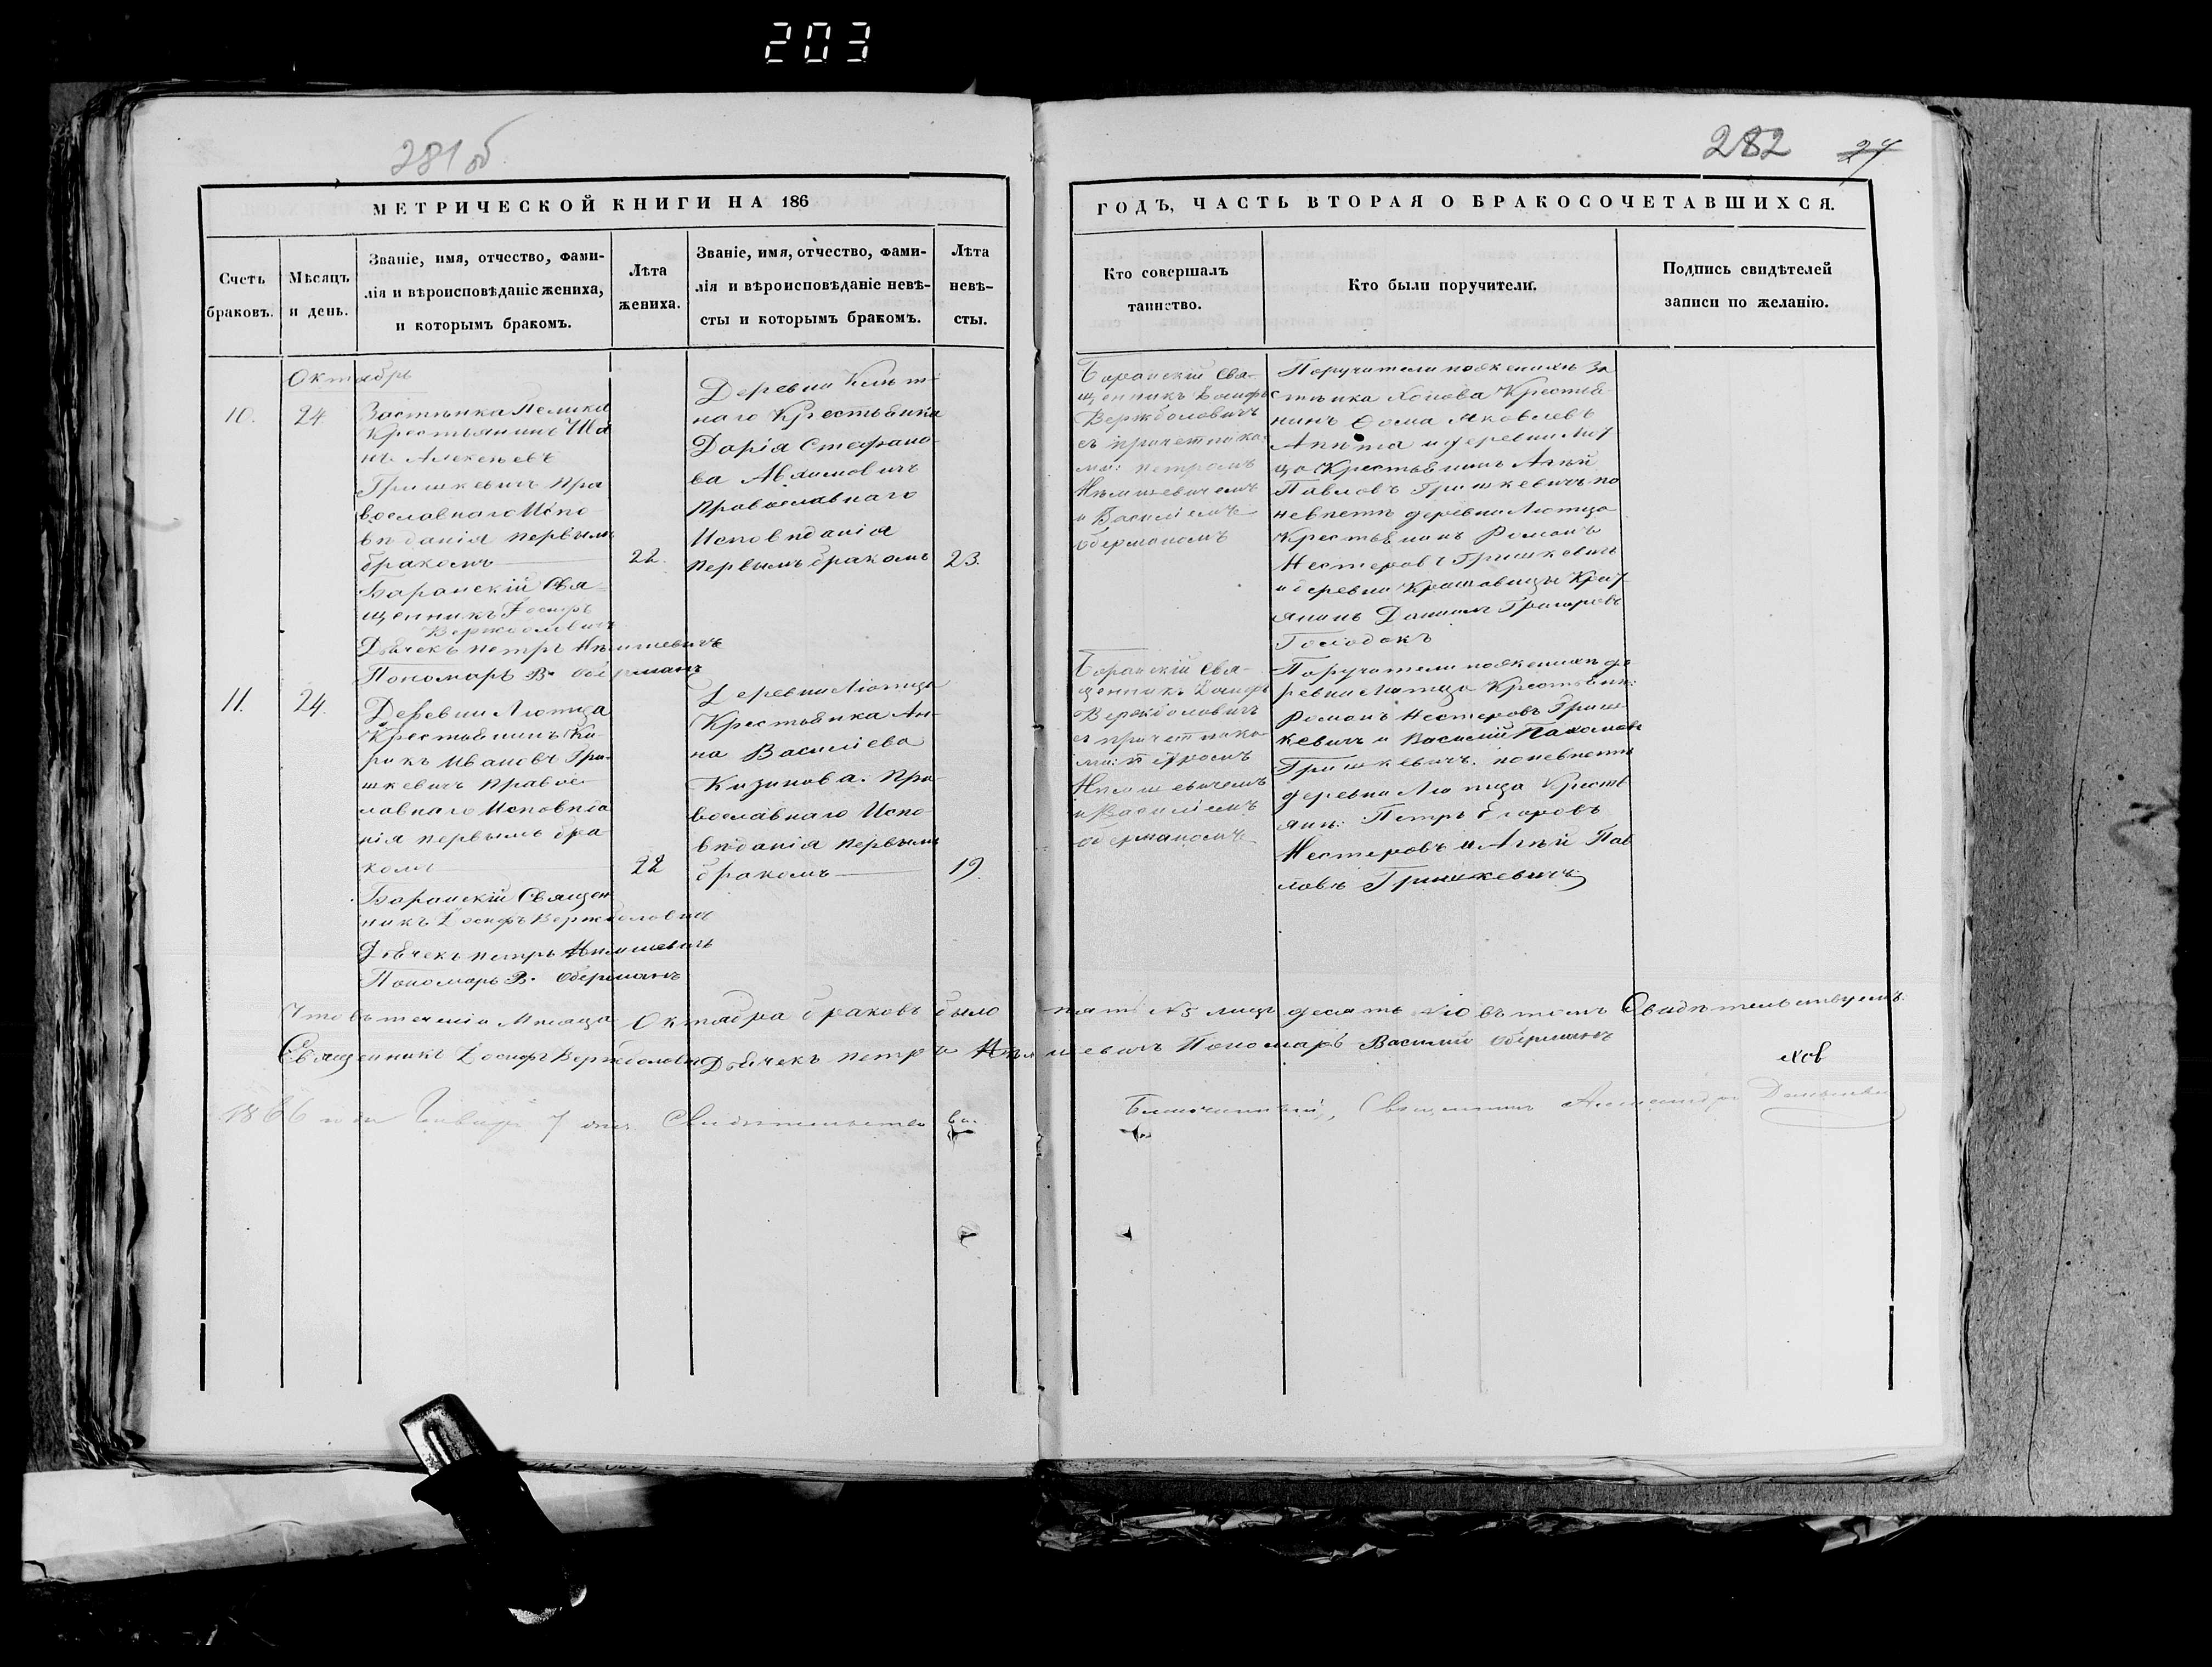 203
281 об
282 27
МЕТРИЧЕСКОЙ КНИГИ НА 186
ГОДЪ, ЧАСТЬ ВТОРАЯ О БРАКОСОЧЕТАВШИХСЯ.
Счетъ
браковъ.
Мѣсяцъ
и день.
Званіе, имя, отчество, фами-
лія и вѣроисповѣданіе жениха,
и которымъ бракомъ.
Лѣта
жениха.
Званіе, имя, отчество, фами-
лія и вѣроисповѣданіе невѣ-
сты и которымъ бракомъ.
Лѣта
невѣ-
сты.
Кто совершалъ
таинство.
Кто были поручители.
Подпись свидѣтелей
записи по желанію.
Октябрь
10.
24
Застѣнка
Крестьянинъ
Алексѣевъ
Гришкевичъ Пра
вославнаго Испо-
вѣданія первымъ
бракомъ
22.
Баранскій Свя-
щенникъ Іосифъ
Вержболовичъ
Дьячекъ Петръ
Пономарь В. Оберманъ
Деревни
наго Крестьянка
Дарія Стефано-
ва
Православнаго
Исповѣданія
Первымъ бракомъ
23.
Баранскій Свя-
щенникъ Іосифъ
Вержболовичъ
съ причетника-
ми: Петромъ
и Василіемъ
Оберманомъ
Поручители по женихѣ За
стѣнка Крестья-
нинъ Ѳома Яковлевъ
и деревни
ца Крестьянинъ
Павловъ Гришкевичъ по
невѣстѣ деревни Лютица
Крестьянинъ Романъ
Нестеровъ Гришкевичъ
и деревни Крест
янинъ Григоровъ
11.
24.
Деревни Лютица
Крестьянинъ Ки-
рикъ Ивановъ Гри-
шкевичъ Правос-
лавнаго Исповѣда
нія первымъ бра
комъ
22
Баранскій Священ
никъ Іосифъ Вержболовичъ
Дьячекъ Петръ
Пономарь В. Оберманъ
Деревни Лютица
Крестьянка Ан-
на Василіева
Кизинова. Пра-
вославнаго Испо
вѣданія первымъ
бракомъ
19.
Баранскій Свя-
щенникъ Іосифъ
Вержболовичъ
съ причетника
ми: Петромъ
и Василіемъ
Оберманомъ
Поручители по женихѣ де
ревни Лютица Крестьян:
Романъ Нестеровъ Гриш-
кевичъ и Василій Пахомовъ
Гришкевичъ. по невѣстѣ
деревни Лютица Кресть
янн: Петръ Егоровъ
Нестеровъ и Пав
ловъ Гришкевичъ
Что въ теченіи Мѣсяца Октября браковъ было пять №5 лицъ десять №10 въ томъ Свидѣтельствуемъ.
Священникъ Іосифъ Вержболовичъ Дьячекъ Петръ Пономарь Василій Оберманъ
1866 года Января 7 дня Свидѣтельствовалъ
Благочинный, Священникъ Александръ